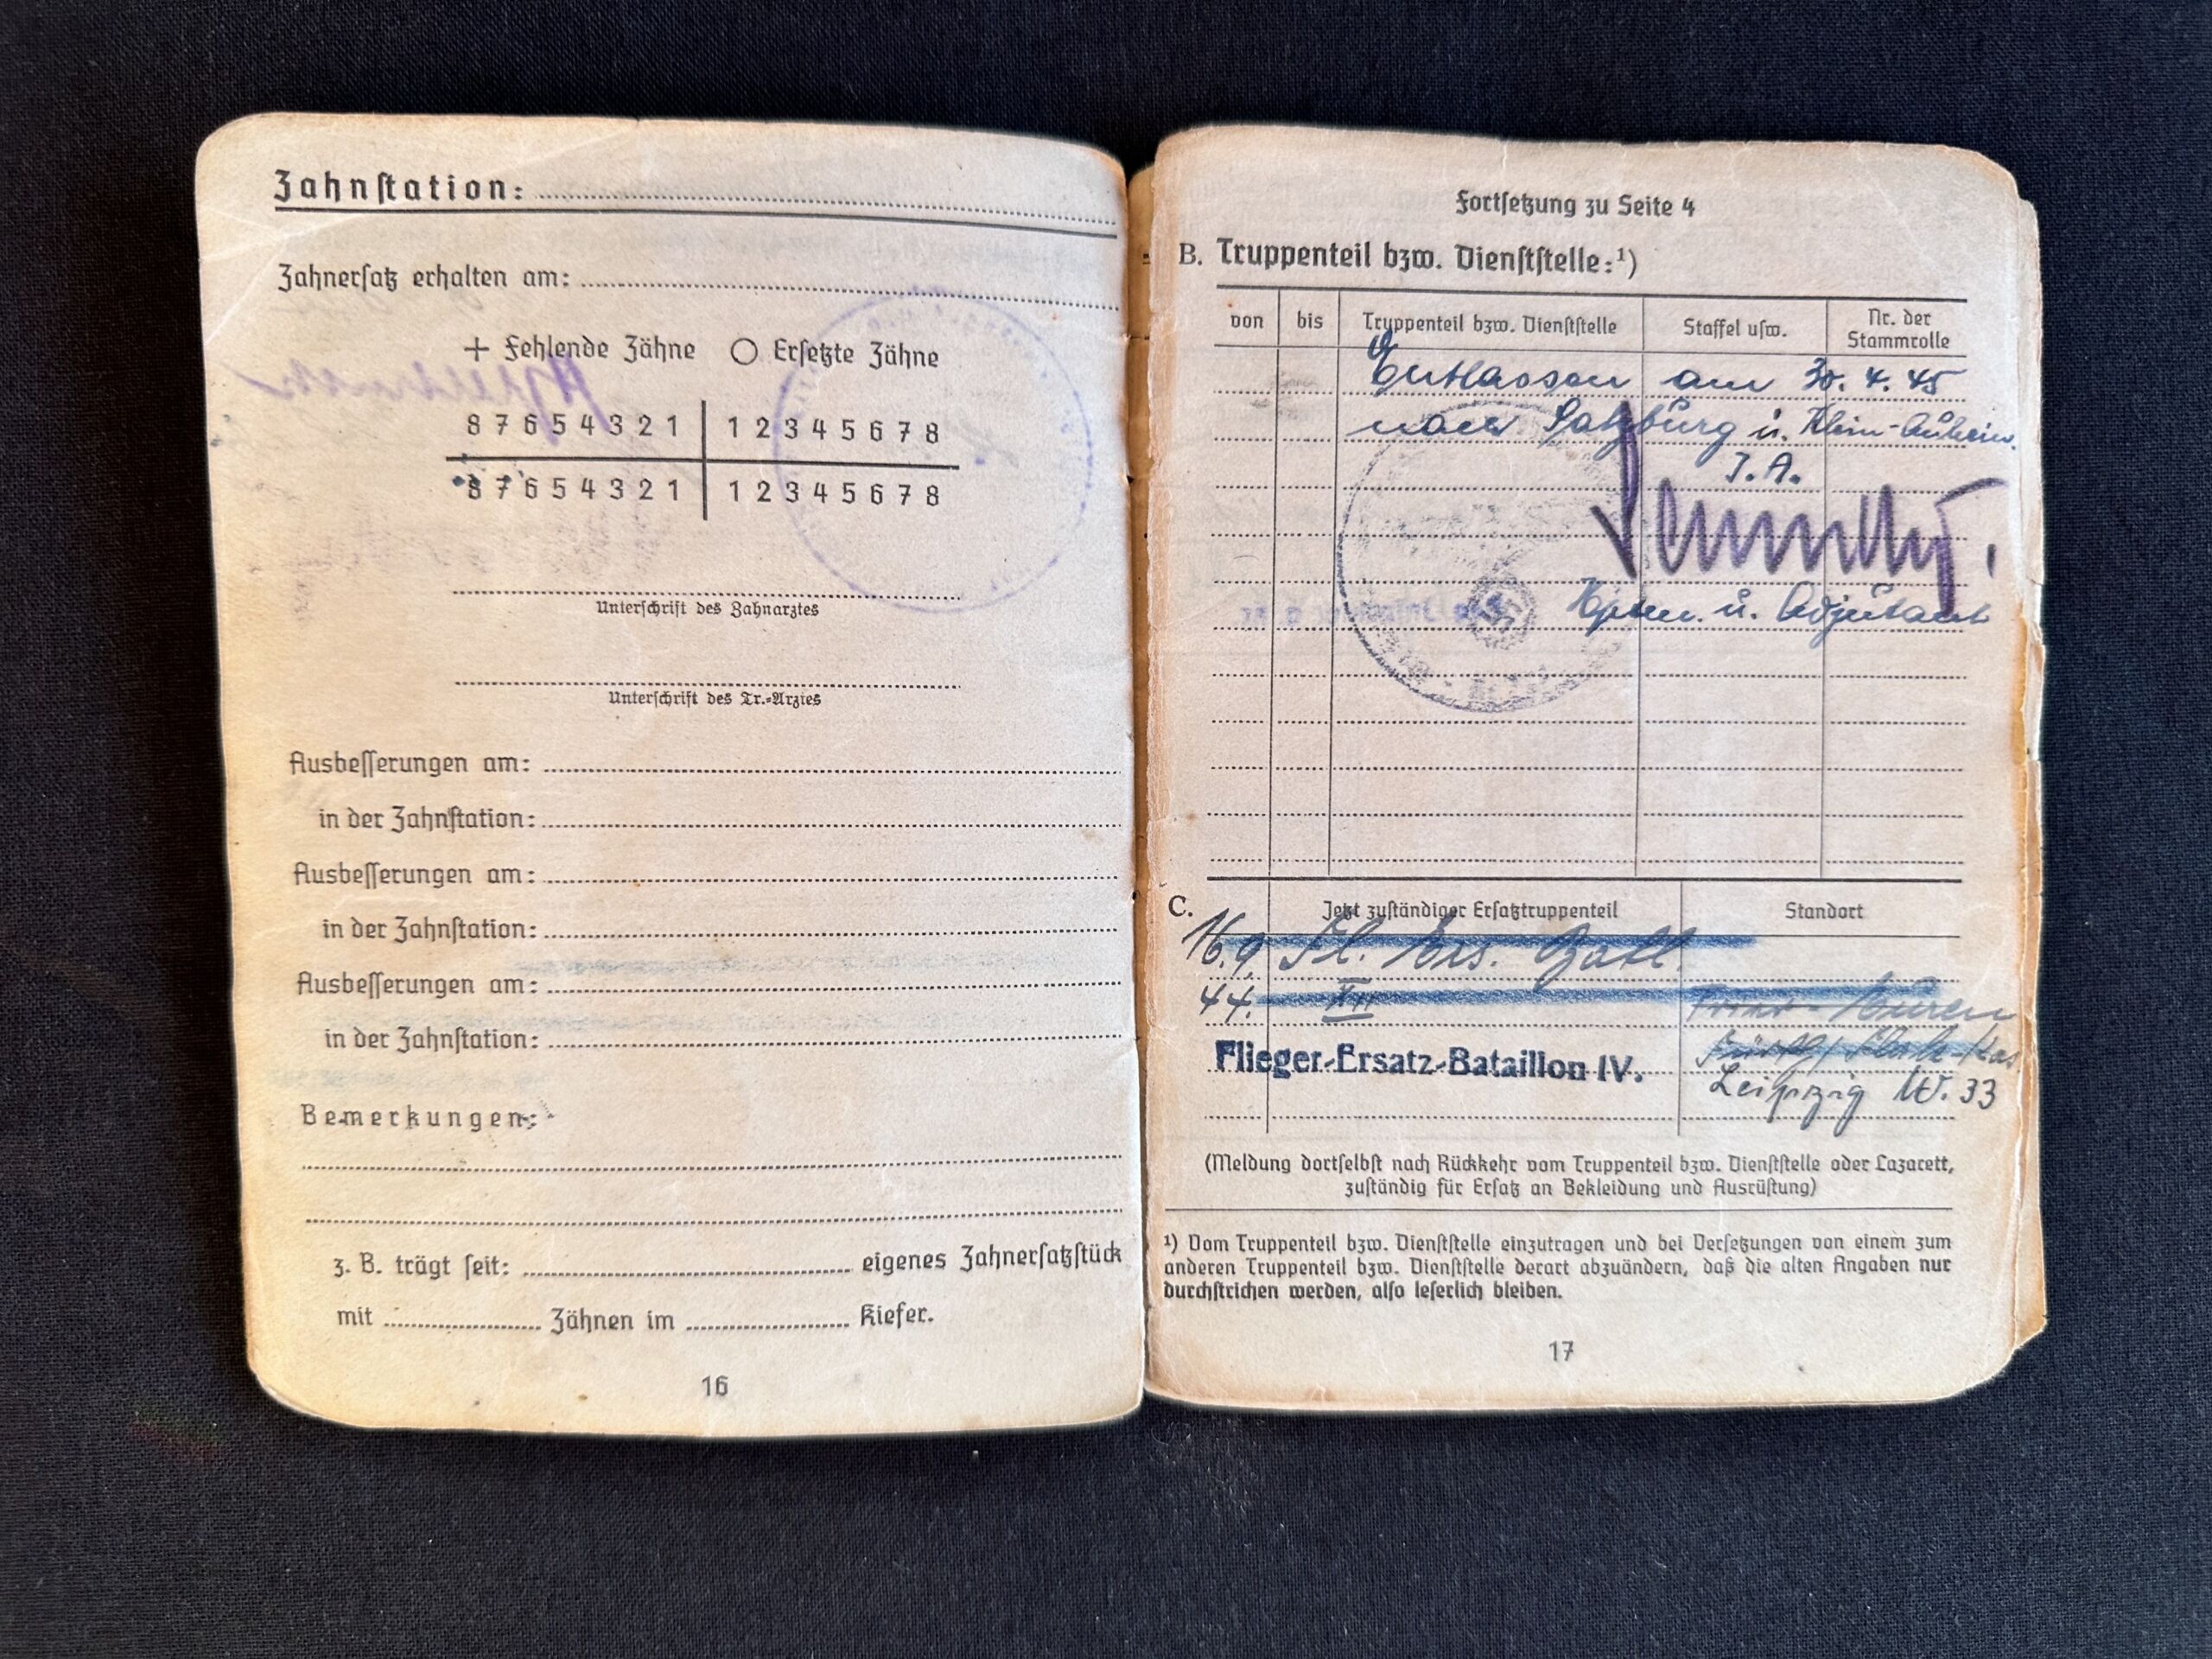 Zahnstation:
Zahnersatz erhalten am:
+ Fehlende Zähne ○ Ersetzte Zähne
8 7 6 5 4 3 2 1 1 2 3 4 5 6 7 8
8 7 6 5 4 3 2 1 1 2 3 4 5 6 7 8
Unterschrift des Zahnarztes
Unterschrift des Tr.-Arztes
Ausbesserungen am:
in der Zahnstation:
Ausbesserungen am:
in der Zahnstation:
Ausbesserungen am:
in der Zahnstation:
Bemerkungen:
z. B. trägt seit: eigenes Zahnersatzstück
mit Zähnen im Kiefer.
16
Fortsetzung zu Seite 4
B. Truppenteil bzw. Dienststelle:¹)
von bis Truppenteil bzw. Dienststelle Staffel usw. Nr. der Stammrolle
Entlassen am 30. 4. 45
nach Salzburg u. Klein-Auheim
I. A.
Hptm. u. Adjutant
C. Jetzt zuständiger Ersatztruppenteil Standort
16.9 Fl. Ers. Batl.
44. XII
Flieger-Ersatz-Bataillon IV.
Leipzig W. 33
(Meldung dortselbst nach Rückkehr vom Truppenteil bzw. Dienststelle oder Lazarett,
zuständig für Ersatz an Bekleidung und Ausrüstung)
¹) Vom Truppenteil bzw. Dienststelle einzutragen und bei Versetzungen von einem zum
anderen Truppenteil bzw. Dienststelle derart abzuändern, daß die alten Angaben nur
durchstrichen werden, also leserlich bleiben.
17